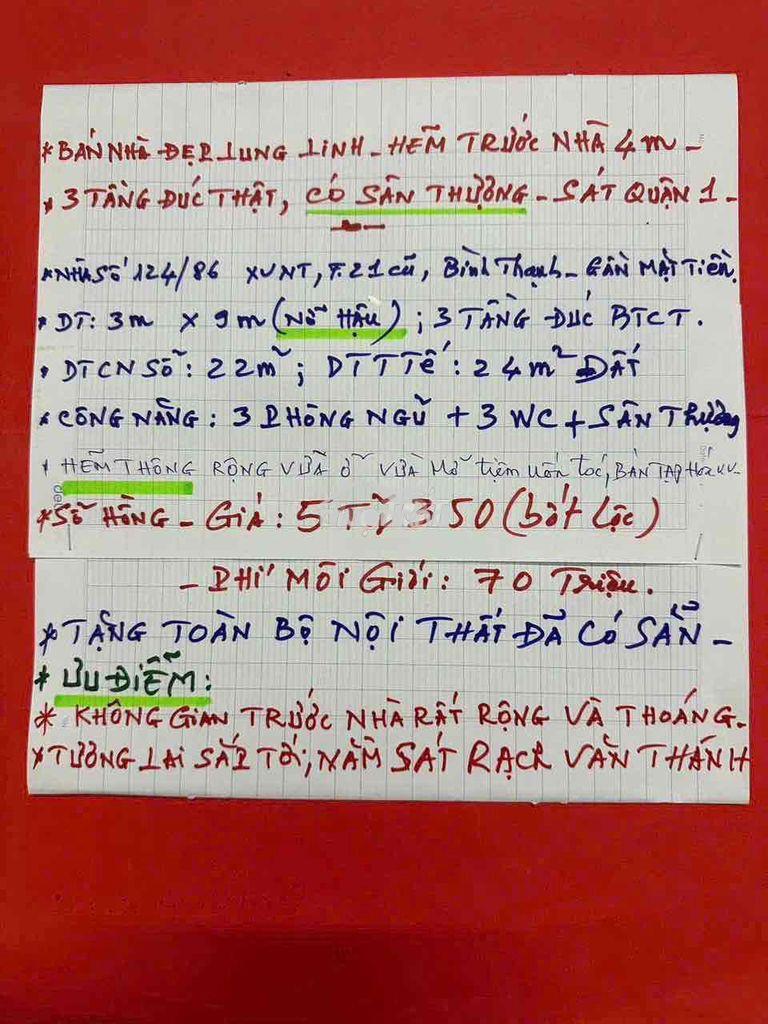 * BÁN NHÀ ĐẸP LUNG LINH - HẼM TRƯỚC NHÀ 4m -
* 3 TẦNG ĐÚC THẬT, CÓ SÂN THƯỢNG - SÁT QUẬN 1 -
* NHÀ SỐ 124/86 XVNT, F.21 cũ, Bình Thạnh - GẦN MẶT TIỀN.
* DT: 3m x 9m (NỞ HẬU); 3 TẦNG ĐÚC BTCT.
* DTCN SỔ: 22m²; DT T TẾ: 24m² ĐẤT
* CÔNG NĂNG: 3 PHÒNG NGŨ + 3 WC + SÂN Thượng
* HẼM THÔNG RỘNG VỪA Ở VỪA MỞ tiệm uốn tóc, BÁN TẠP HÓA
* SỔ HỒNG - GIÁ: 5 TỶ 350 (bớt lộc)
- PHÍ MÔI GIỚI: 70 TRIỆU.
* TẶNG TOÀN BỘ NỘI THẤT ĐÃ CÓ SẴN -
* ƯU ĐIỂM:
* KHÔNG GIAN TRƯỚC NHÀ RẤT RỘNG VÀ THOÁNG.
* TƯƠNG LAI SẮP TỚI, NẰM SÁT RẠCH VĂN THÁNH